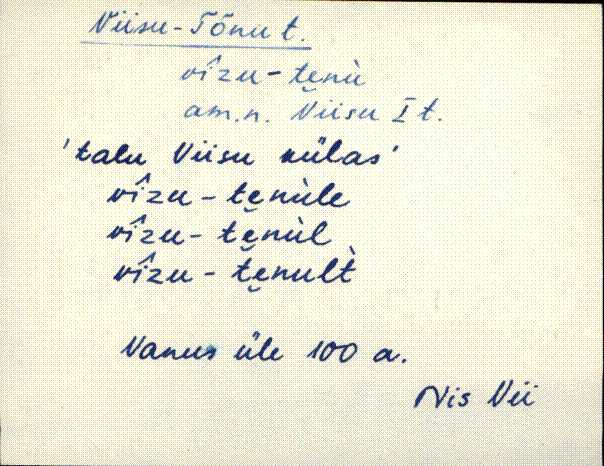 Viisu-Tõnu t.
vîzu-te̮nù
am.n. Viisu I t.
'talu Viisu külas'
vîzu-te̮nùle
vîzu-te̮nùl
vîzu-te̮nult̀
Vanus üle 100 a.
Nis Vii